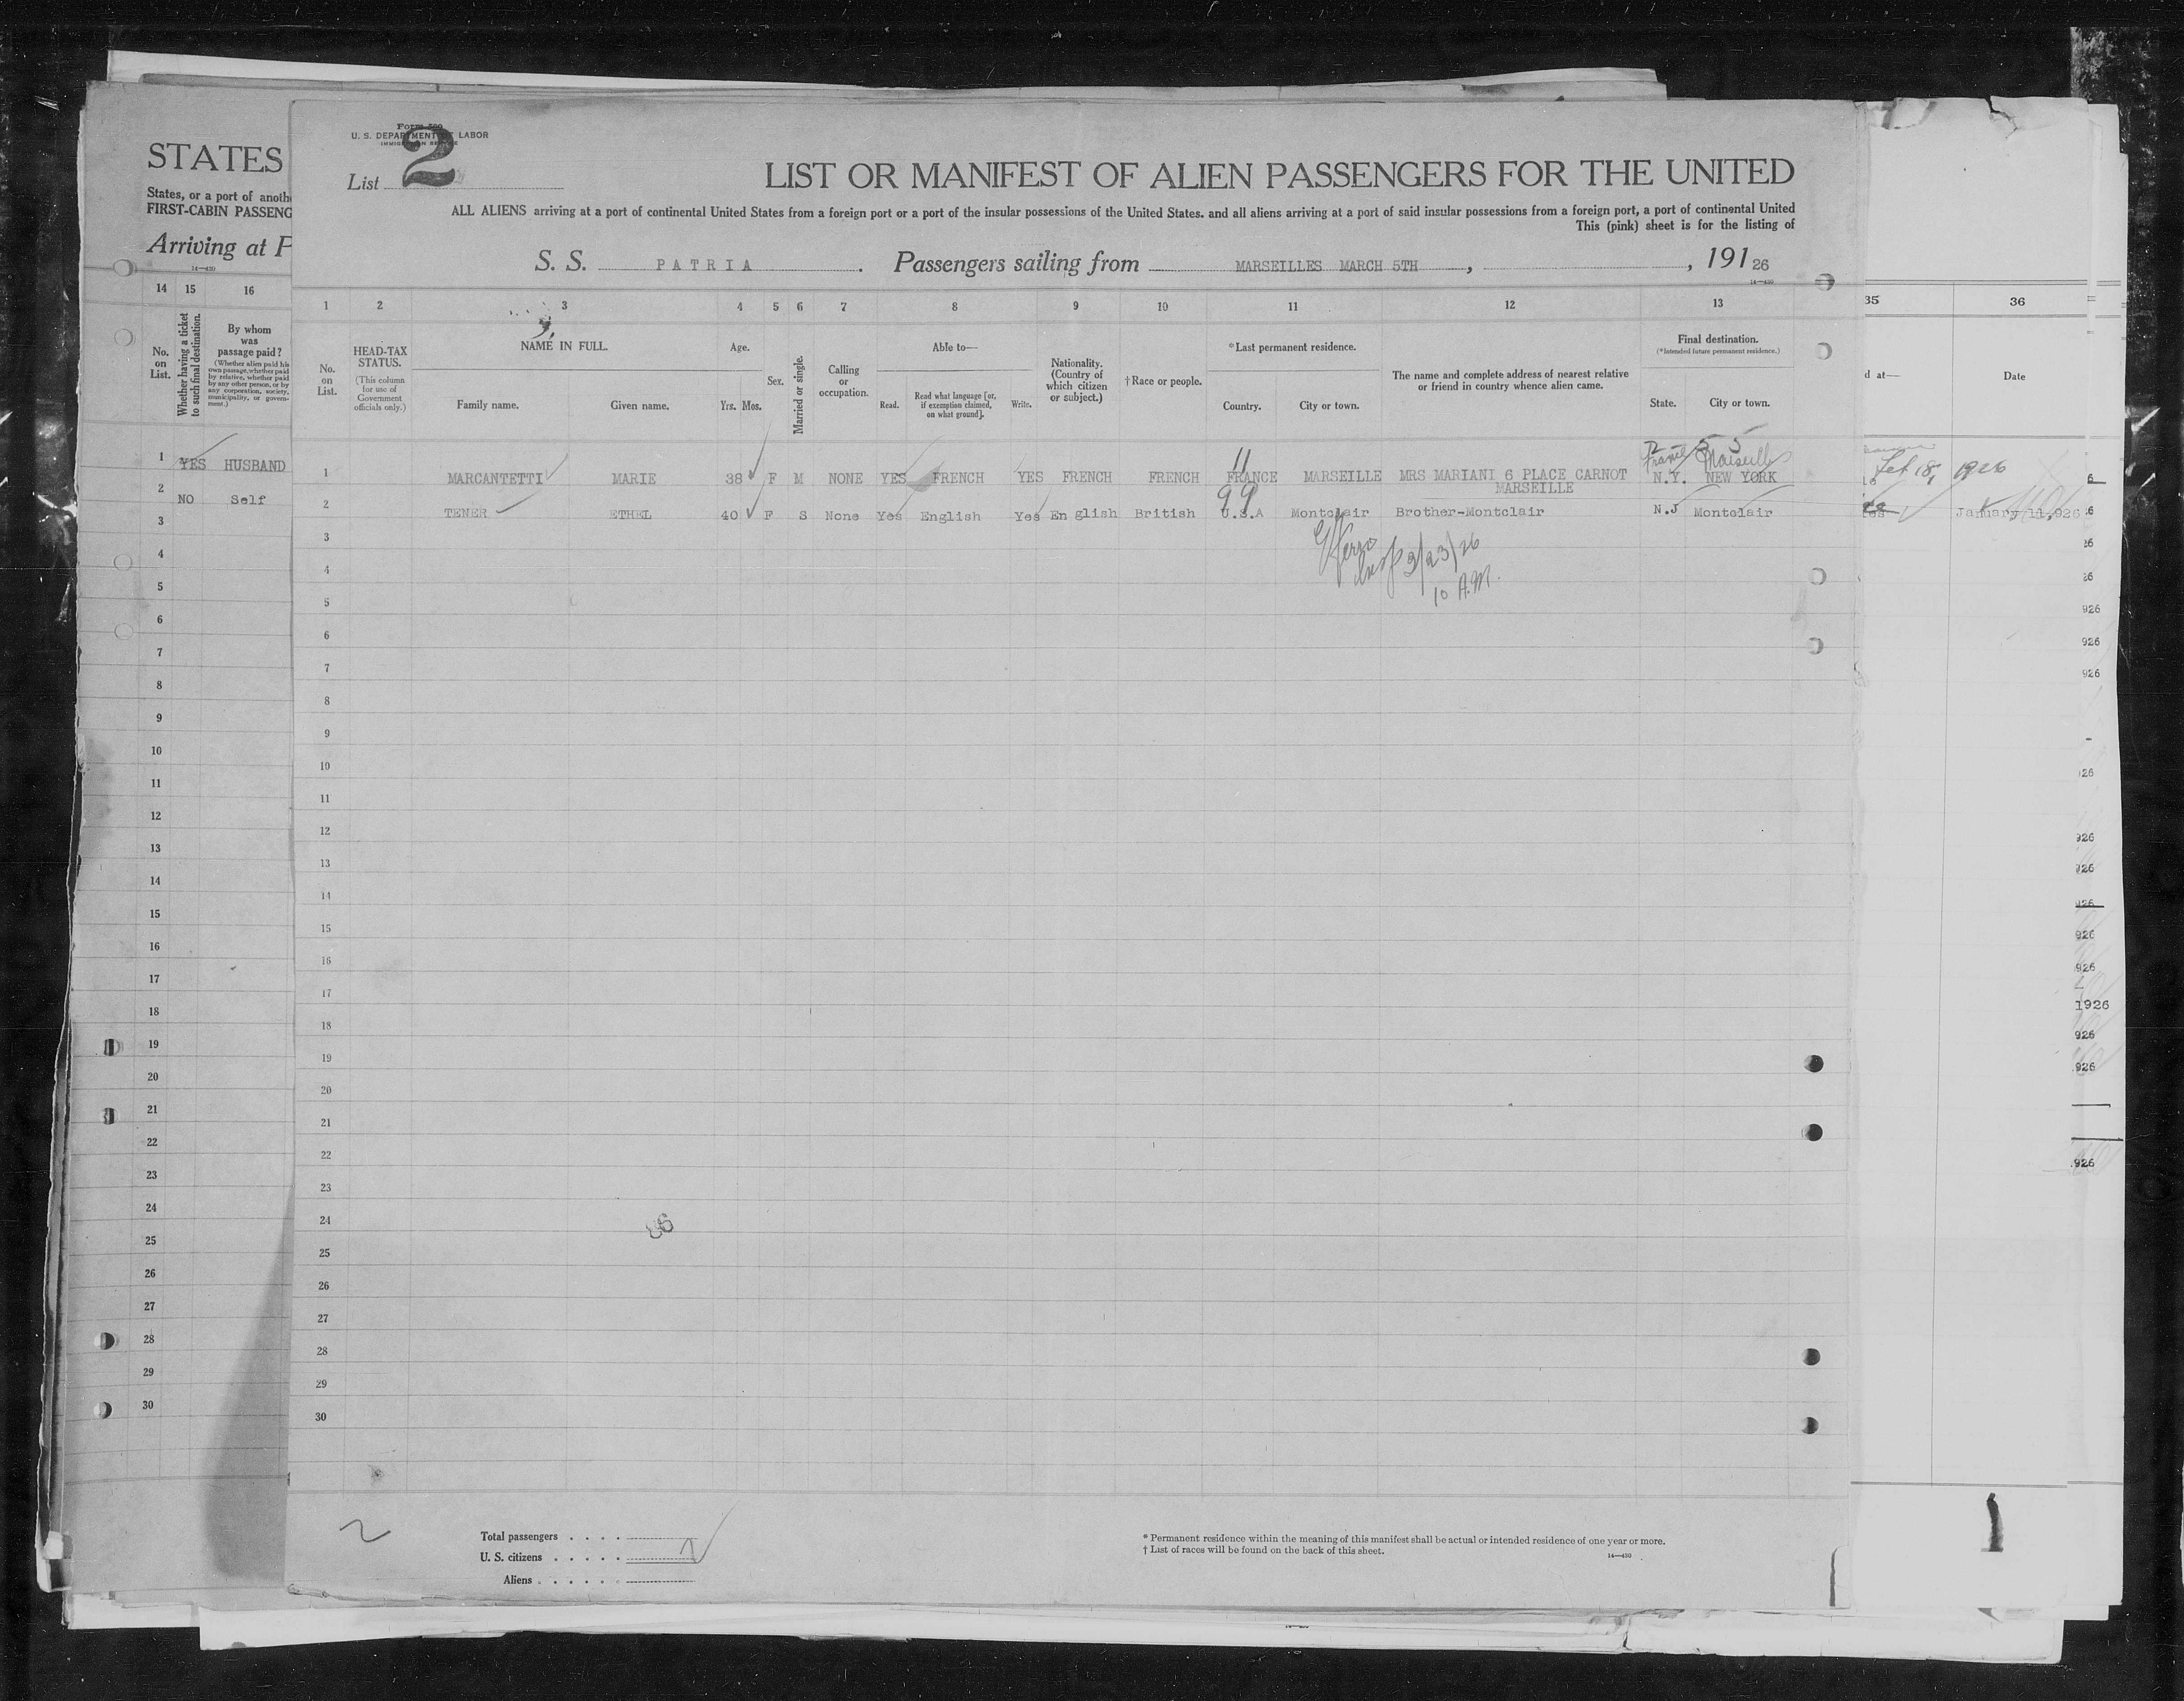 STATES
States, or a port of anoth
FIRST-CABIN PASSENG
Arriving at P
14—430
14 15 16
No. on List.
Whether having a ticket to such final destination.
By whom was passage paid?
(Whether alien paid his own passage, whether paid by relative, whether paid by any other person, or by any corporation, society, municipality, or government.)
1 YES HUSBAND
2 NO Self
3
4
5
6
7
8
9
10
11
12
13
14
15
16
17
18
19
20
21
22
23
24
25
26
27
28
29
30
U. S. DEPARTMENT OF LABOR
List 2
LIST OR MANIFEST OF ALIEN PASSENGERS FOR THE UNITED
ALL ALIENS arriving at a port of continental United States from a foreign port or a port of the insular possessions of the United States, and all aliens arriving at a port of said insular possessions from a foreign port, a port of continental United
This (pink) sheet is for the listing of
S. S. PATRIA. Passengers sailing from MARSEILLES MARCH 5TH, , 191 26
14—430
1 2 3 4 5 6 7 8 9 10 11 12 13
No. on List.
HEAD-TAX STATUS.
(This column for use of Government officials only.)
NAME IN FULL.
Family name. Given name.
Age.
Yrs. Mos.
Sex.
Married or single.
Calling or occupation.
Able to—
Read. Read what language [or, if exemption claimed, on what ground]. Write.
Nationality. (Country of which citizen or subject.)
†Race or people.
*Last permanent residence.
Country. City or town.
The name and complete address of nearest relative or friend in country whence alien came.
Final destination.
(*Intended future permanent residence.)
State. City or town.
11 France Marseille 55
1 MARCANTETTI MARIE 38 F M NONE YES FRENCH YES FRENCH FRENCH FRANCE MARSEILLE MRS MARIANI 6 PLACE CARNOT N.Y. NEW YORK
MARSEILLE
99
2 TENER ETHEL 40 F S None Yes English Yes En glish British U.S.A Montclair Brother-Montclair N.J Montclair
3
3/23/26
4
10 A.M.
5
6
7
8
9
10
11
12
13
14
15
16
17
18
19
20
21
22
23
24
25
26
27
28
29
30
2
Total passengers . . . .
U. S. citizens . . . . .
Aliens . . . . . .
* Permanent residence within the meaning of this manifest shall be actual or intended residence of one year or more.
† List of races will be found on the back of this sheet.
14—430
35 36
d at— Date
Feb 18, 1926
January 11, 926
6
6
26
26
926
926
926
26
926
926
926
926
926
1926
926
926
926
1